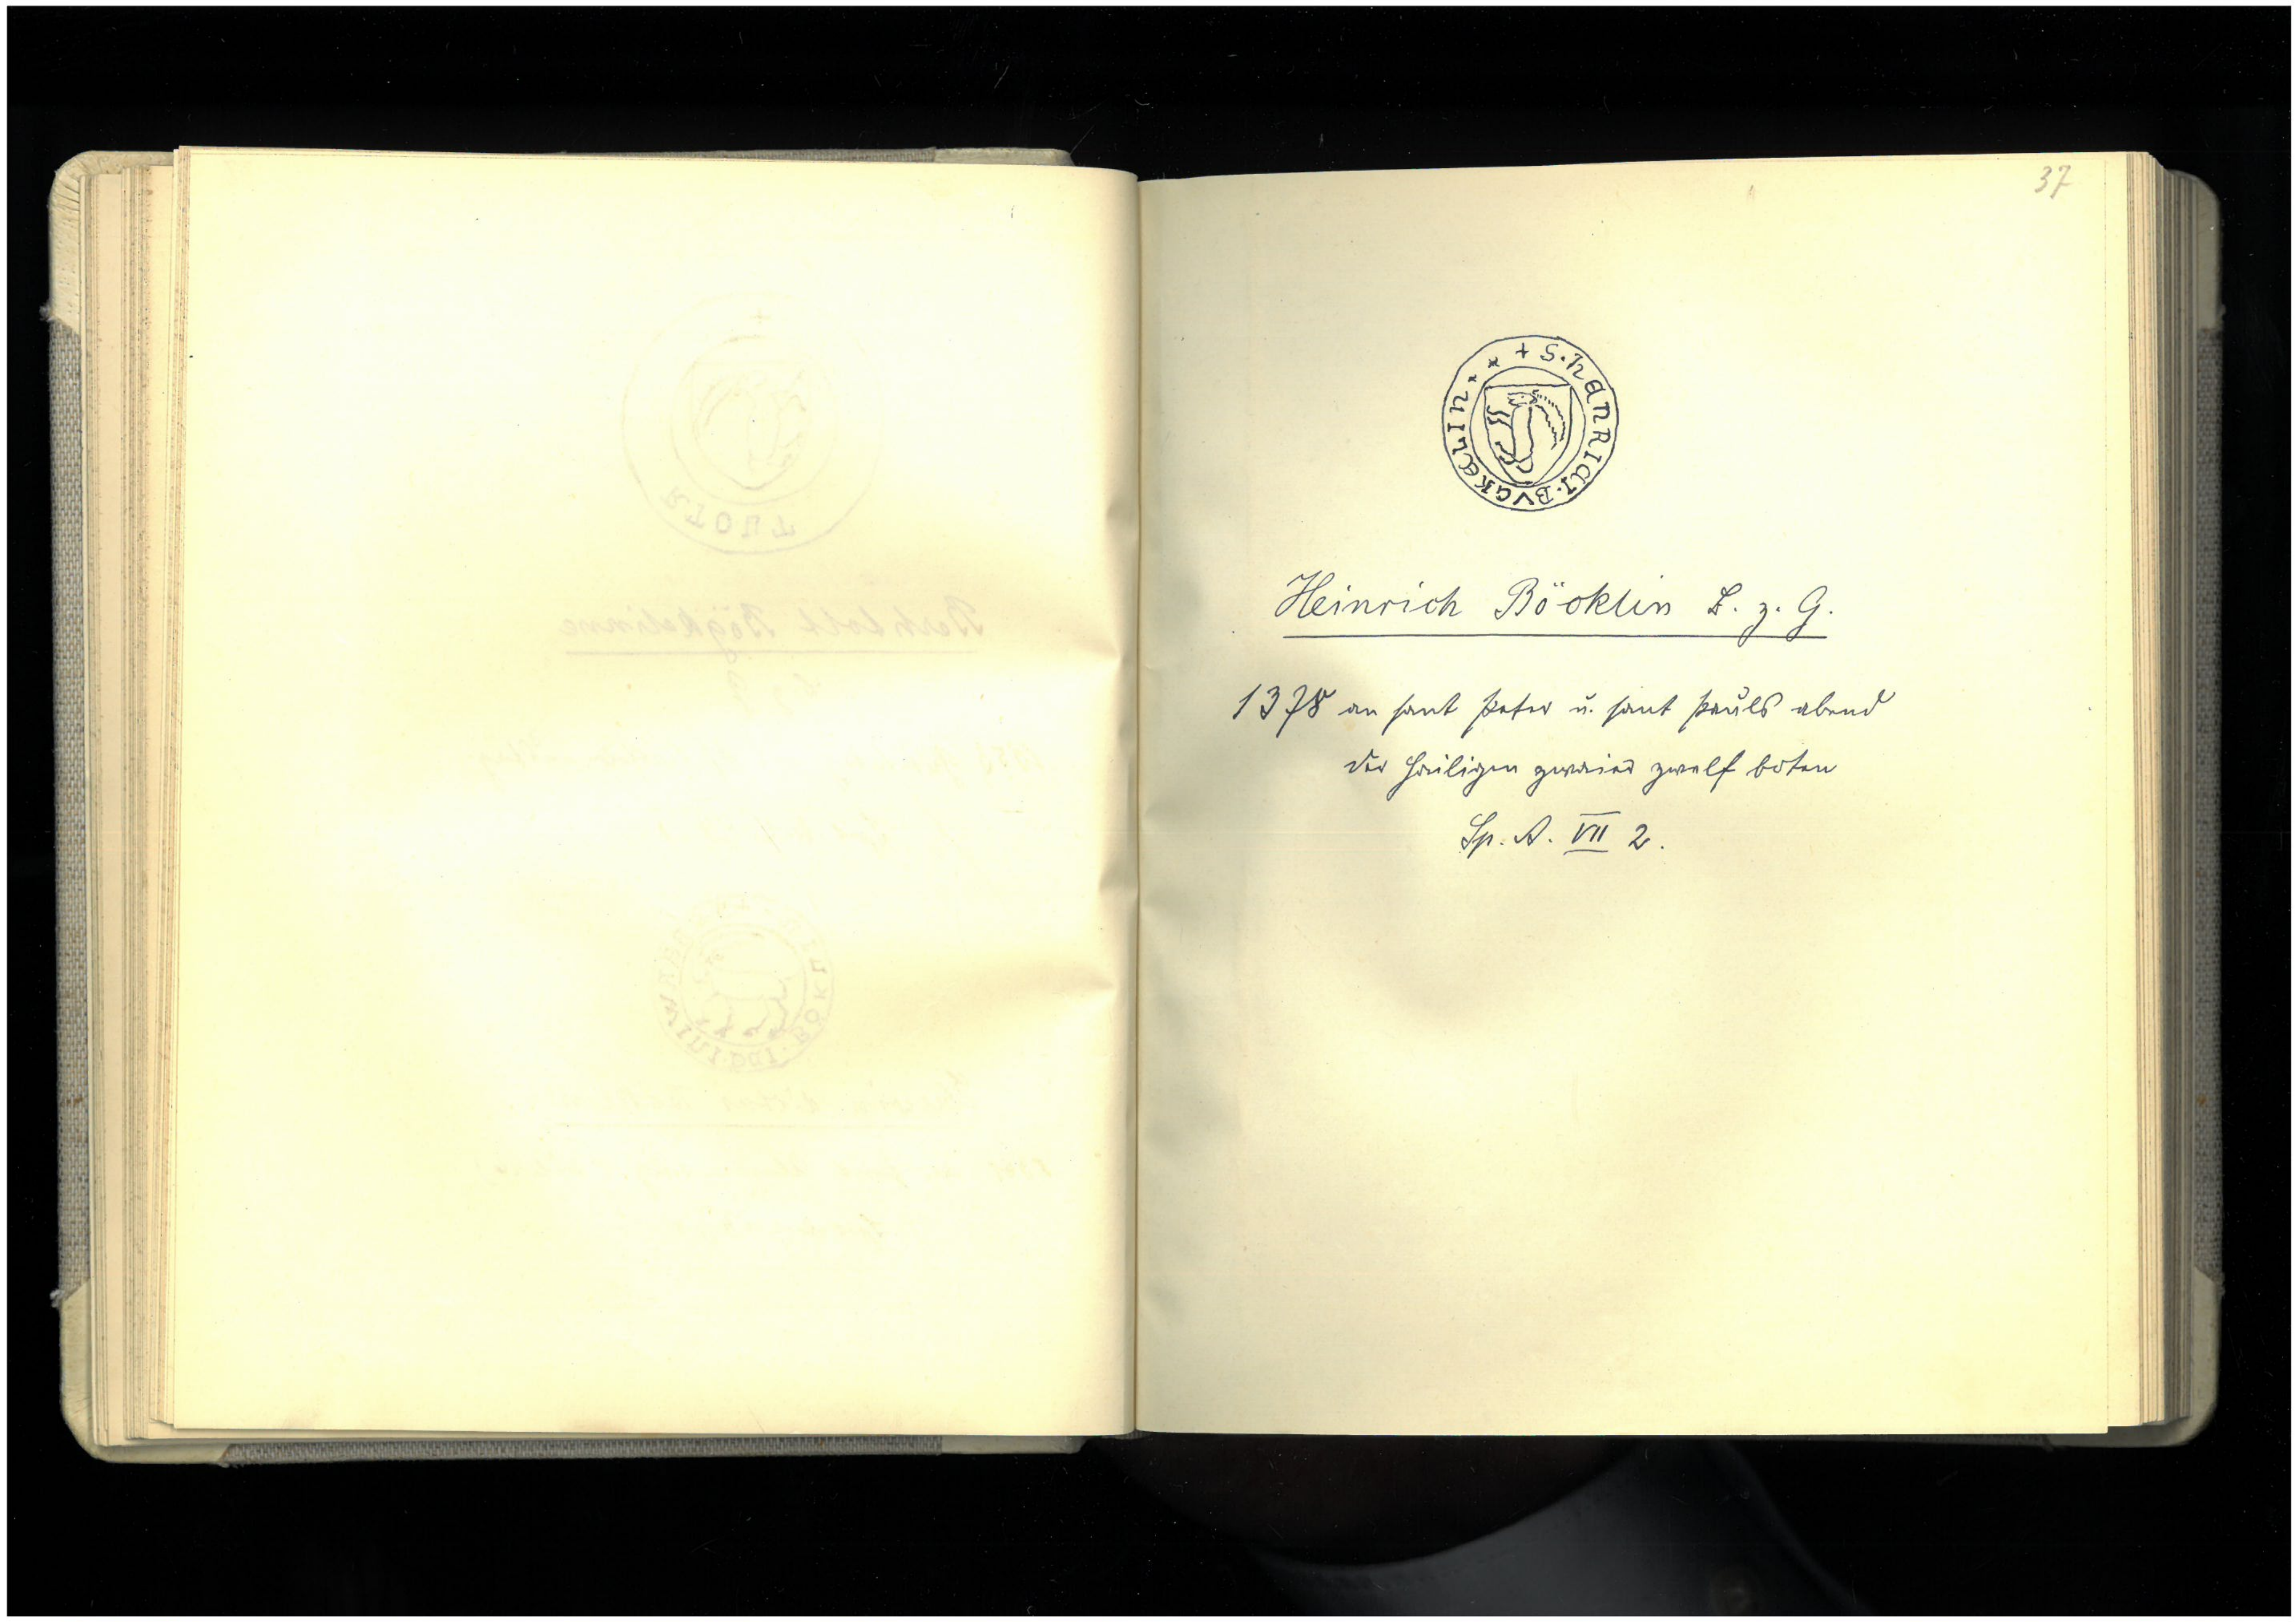 37
+ S. HENRICI. BVGKELIN
Heinrich Böcklin B. z. G.
1378 an sant Peter u. sant Pauls abend
der heiligen zwaier zwelf boten
Sp. A. VII 2.